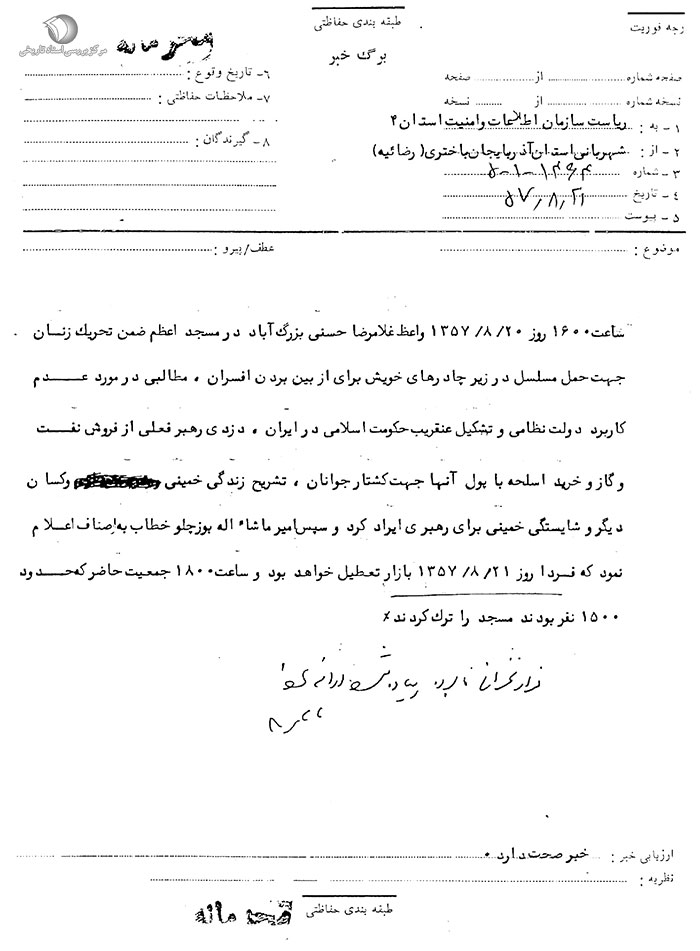 مرکز بررسی اسناد تاریخی
طبقه بندی حفاظتی
رجه فوریت
برگ خبر
صفحه شماره از صفحه
نسخه شماره از نسخه
۱ - به : ریاست سازمان اطلاعات و امنیت استان ۴
۲ - از : شهربانی استان آذربایجان باختری ( رضائیه )
۳ - شماره
۴ - تاریخ ۵۷/۸/۲۱
۵ - پیوست
۶ - تاریخ وقوع :
۷ - ملاحظات حفاظتی :
۸ - گیرندگان :
موضوع :
عطف/پیرو :
ساعت ۱۶۰۰ روز ۱۳۵۷/۸/۲۰ واعظ غلامرضا حسنی بزرگ آباد در مسجد اعظم ضمن تحریک زنان
جهت حمل مسلسل در زیر چادرهای خویش برای از بین بردن افسران ، مطالبی در مورد عدم
کاربرد دولت نظامی و تشکیل عنقریب حکومت اسلامی در ایران ، دزدی رهبر فعلی از فروش نفت
و گاز و خرید اسلحه با پول آنها جهت کشتار جوانان ، تشریح زندگی خمینی وکسان
دیگر و شایستگی خمینی برای رهبری ایراد کرد و سپس امیر ماشاء اله بوزچلو خطاب به اصناف اعلام
نمود که فردا روز ۱۳۵۷/۸/۲۱ بازار تعطیل خواهد بود و ساعت ۱۸۰۰ جمعیت حاضر که حدود
۱۵۰۰ نفر بودند مسجد را ترک کردند٪
ارزیابی خبر : خبر صحت دارد ۰
نظریه :
طبقه بندی حفاظتی